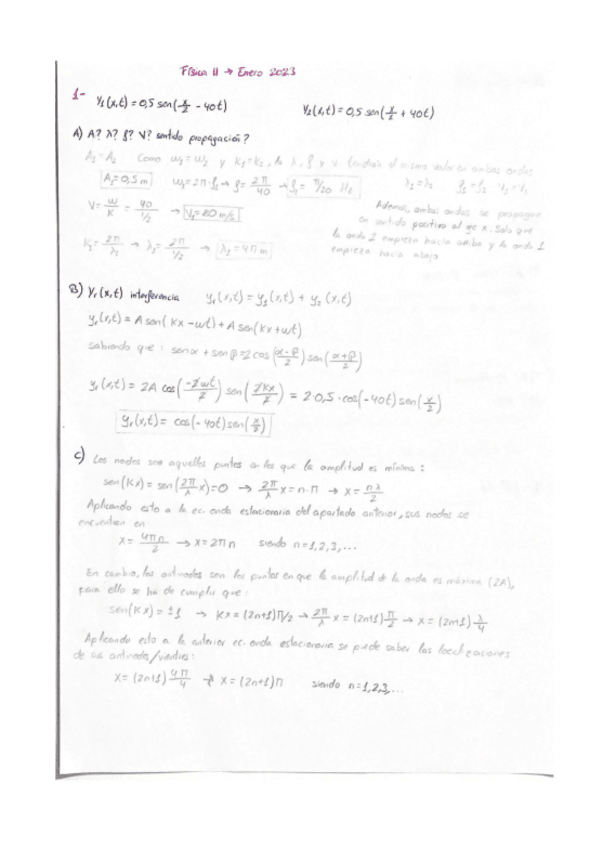 Física II → Enero 2023
1- y₁(x,t) = 0,5 sen(x/2 - 40t)    y₂(x,t) = 0,5 sen(x/2 + 40t)
A) A? λ? f? V? sentido propagación?
A₁=A₂ Como ω₁=ω₂ y K₁=K₂, la λ, f y v tendrán el mismo valor en ambas ondas
A₁=0,5 m    ω₁=2π·f₁ → f= 2π/40 → f₁= π/20 Hz    λ₁=λ₂  f₁=f₂  V₁=V₂
V= ω/K = 40/(1/2) → V₁=80 m/s
Además, ambas ondas se propagan
en sentido positivo al eje x. Solo que
la onda 2 empieza hacia arriba y la onda 1
empieza hacia abajo
K₁= 2π/λ₁ → λ₁= 2π/(1/2) → λ₁=4π m
B) yᵣ(x,t) interferencia    yᵣ(x,t) = y₁(x,t) + y₂(x,t)
yᵣ(x,t) = A sen(Kx - ωt) + A sen(Kx + ωt)
sabiendo que: senα + senβ = 2 cos((α-β)/2) sen((α+β)/2)
yᵣ(x,t) = 2A cos(-2ωt/2) sen(2Kx/2) = 2·0,5·cos(-40t) sen(x/2)
yᵣ(x,t) = cos(-40t) sen(x/2)
C) Los nodos son aquellos puntos en los que la amplitud es mínima:
sen(Kx) = sen(2π/λ x) = 0 → 2π/λ x = n·π → x = nλ/2
Aplicando esto a la ec. onda estacionaria del apartado anterior, sus nodos se
encuentran en
x = 4πn/2 → x = 2πn    siendo n=1,2,3,...
En cambio, los antinodos son los puntos en que la amplitud de la onda es máxima (2A),
para ello se ha de cumplir que:
sen(Kx) = ±1 → Kx = (2n+1)π/2 → 2π/λ x = (2n+1) π/2 → x = (2n+1) λ/4
Aplicando esto a la anterior ec. onda estacionaria se puede saber las localizaciones
de sus antinodos/vientres:
x = (2n+1) 4π/4 → x = (2n+1)π    siendo n=1,2,3,...